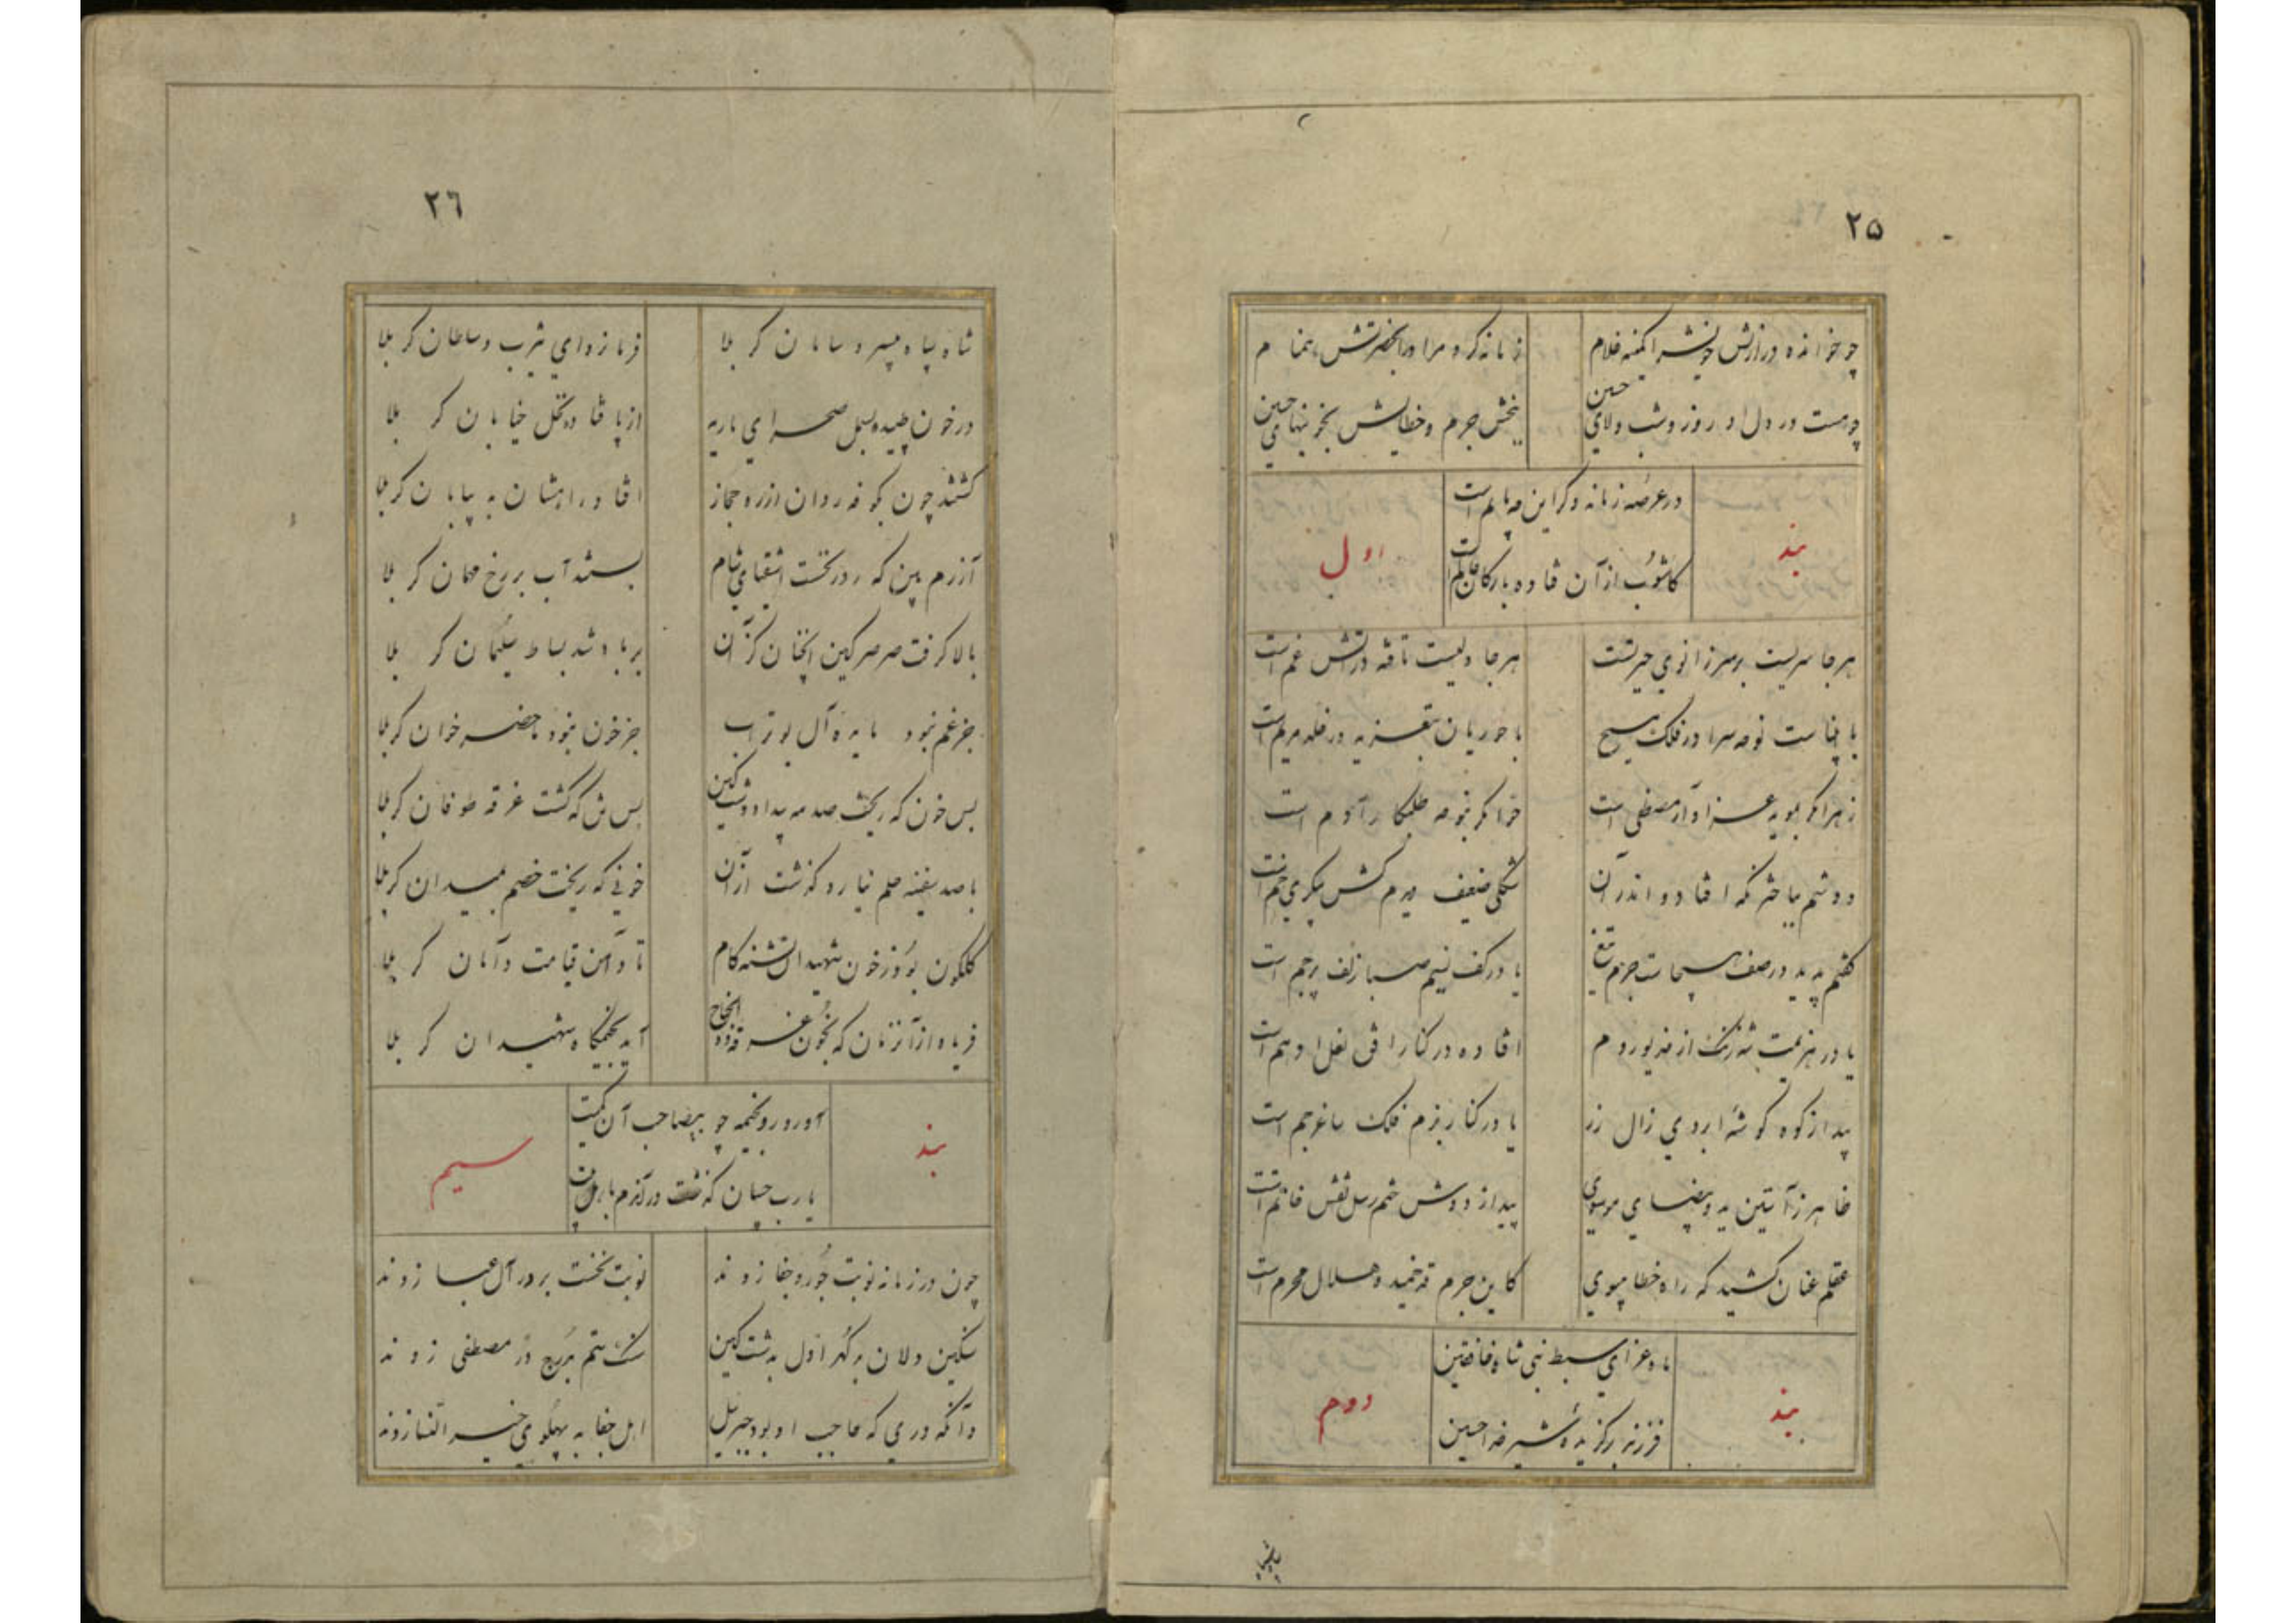 ۲۵
چو خوانده در ازلش خویش را کمینه غلام
زمانه کرد مرا در
چو هست در دل او روز و شب ولای حسین
ببخش جرم و خطایش بخونبهای حسین
بند
در عرصه زمانه دگر این چه ماتم است
اول
کاشوب از آن فتاده بارکان عالم است
هر جا سریست بر سر زانوی حیرتست
هر جا دلیست تافته در آتش غم است
با انبیاست نوحه سرا در فلک مسیح
با حوریان بتعزیه در خلد مریم است
زهرا مگر بمویه عزادار مصطفی است
حوا مگر بنوحه طلبکار آدم است
دو چشم باختر نگه افتاد و اندر آن
شکلی ضعیف دیدم کش پیکری خم است
گفتم پدید در صف هیجاست جرم تیغ
یا در کف نسیم صبا زلف پرچم است
یا در هزیمت شه زنگ از خدیو روم
افتاده در کنار افق نعل ادهم است
پیدا ز کوه گوشه ابروی زال زر
یا در کنار بزم فلک ساغر جم است
ظاهر ز آستین ید و بیضای موسوی
پیدا ز دوش ختم رسل نقش خاتم است
عقلم عنان کشید که راه خطا مپوی
کاین جرم قد خمیده هلال محرم است
بند
ماه عزای سبط نبی شاه خافقین
دوم
فرزند برگزیده شیر خدا حسین
۲٦
شاه سپاه بیسر و سامان کربلا
فرمانروای یثرب و سلطان کربلا
در خون طپیده بسمل صحرای ماریه
از پا فتاده نخل خیابان کربلا
گشتند چون بکوفه روان از ره حجاز
افتاد راهشان به بیابان کربلا
آزرم بین که روز نخست اشقیای شام
بستند آب بر رخ مهمان کربلا
بالا گرفت صرصر کین آنچنان کز آن
بر باد شد بساط سلیمان کربلا
جز غم نبود مایده آل بوتراب
جز خون نبود ماحضر خوان کربلا
بس خون که ریخت صدمه بیداد و تیغ کین
بس تن که گشت غرقه طوفان کربلا
با صد سفینه حلم نیارد گذشت از آن
خونی که ریخت خصم بمیدان کربلا
گلگون بود ز خون شهیدان تشنه کام
تا دامن قیامت دامان کربلا
فریاد از آن زمان که بخون غرقه ذوالجناح
آید بخیمگاه شهیدان کربلا
بند
آورد رو بخیمه چو بیصاحب آن کمیت
سیم
یارب چسان گذشت در آندم باهل بیت
چون در زمانه نوبت جور و جفا زدند
نوبت نخست بر در آل عبا زدند
سنگین دلان به گهر اول به دست کین
سنگ ستم بر درج در مصطفی زدند
وآنگه دری که حاجب او بود جبرئیل
اهل جفا به پهلوی خیرالنسا زدند